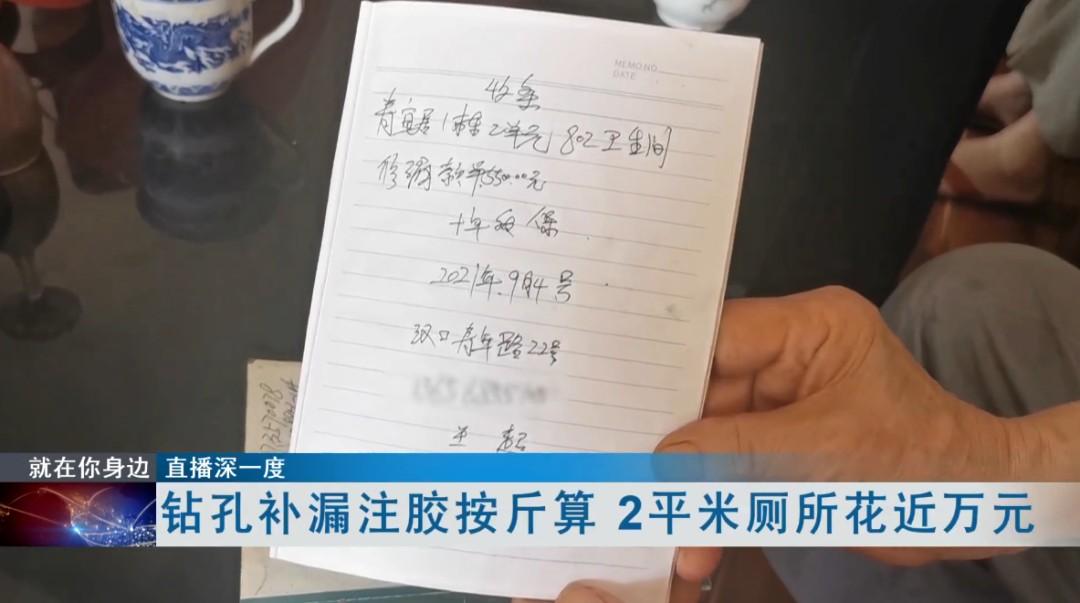 MEMO NO
DATE
收条
青宜居1栋2单元802卫生间
修漏款¥:5500.00元
十年质保
2021年9月4号
汉口青年路22号
就在你身边 直播深一度
钻孔补漏注胶按斤算 2平米厕所花近万元